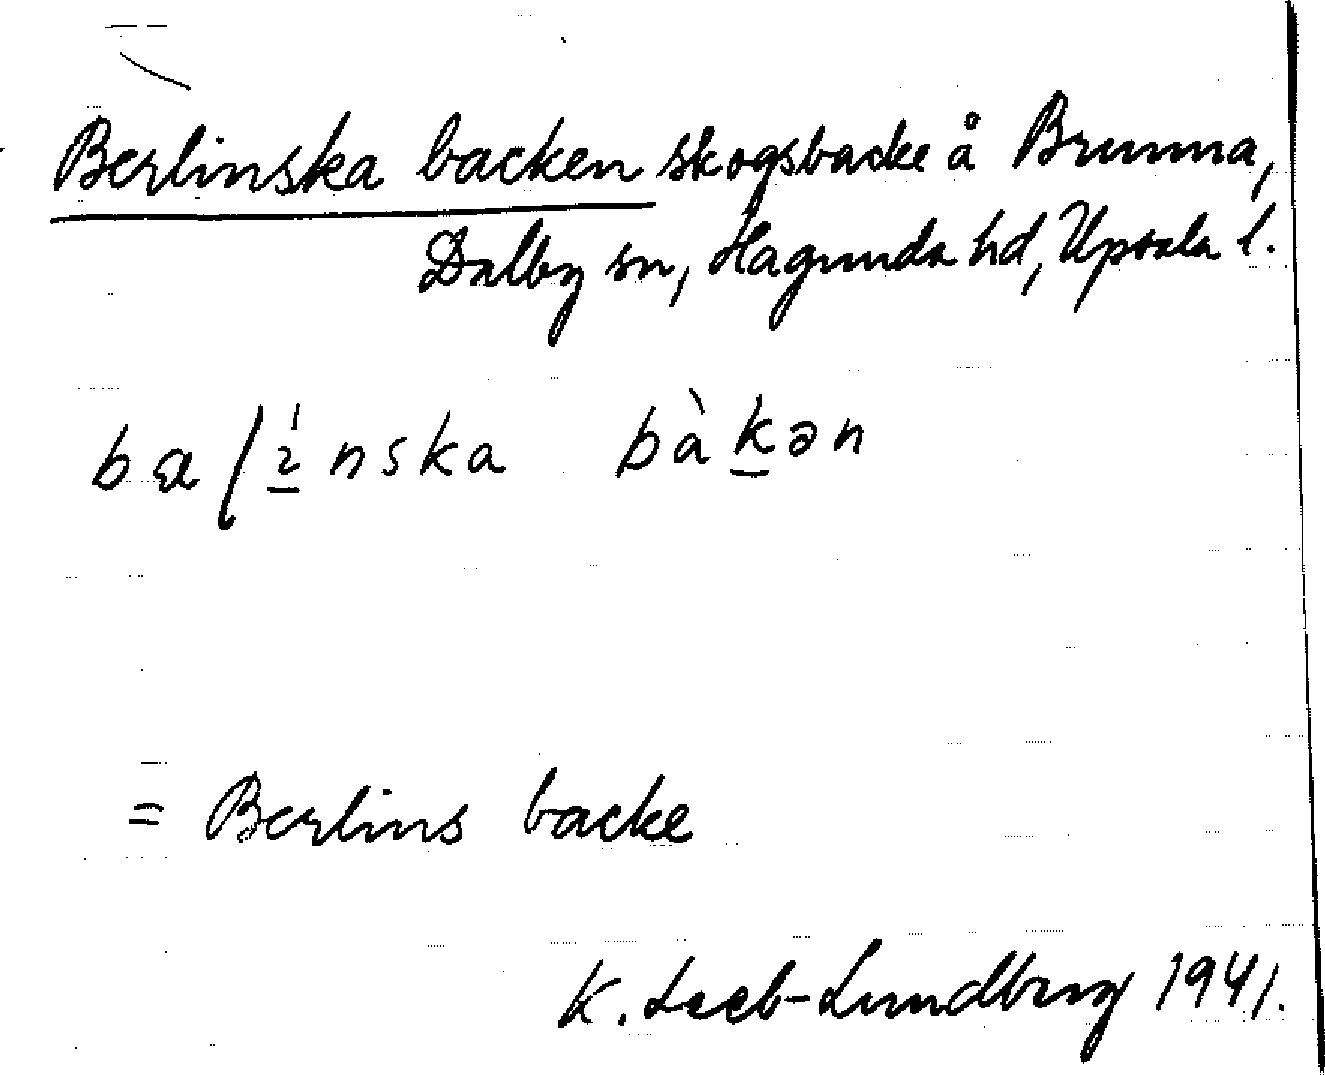 Berlinska backen skogsbacke å Brunna,
Dalby sn, Hagunda hd, Upsala l.
bàkən
= Berlins backe
K. Leeb-Lundberg 1941.